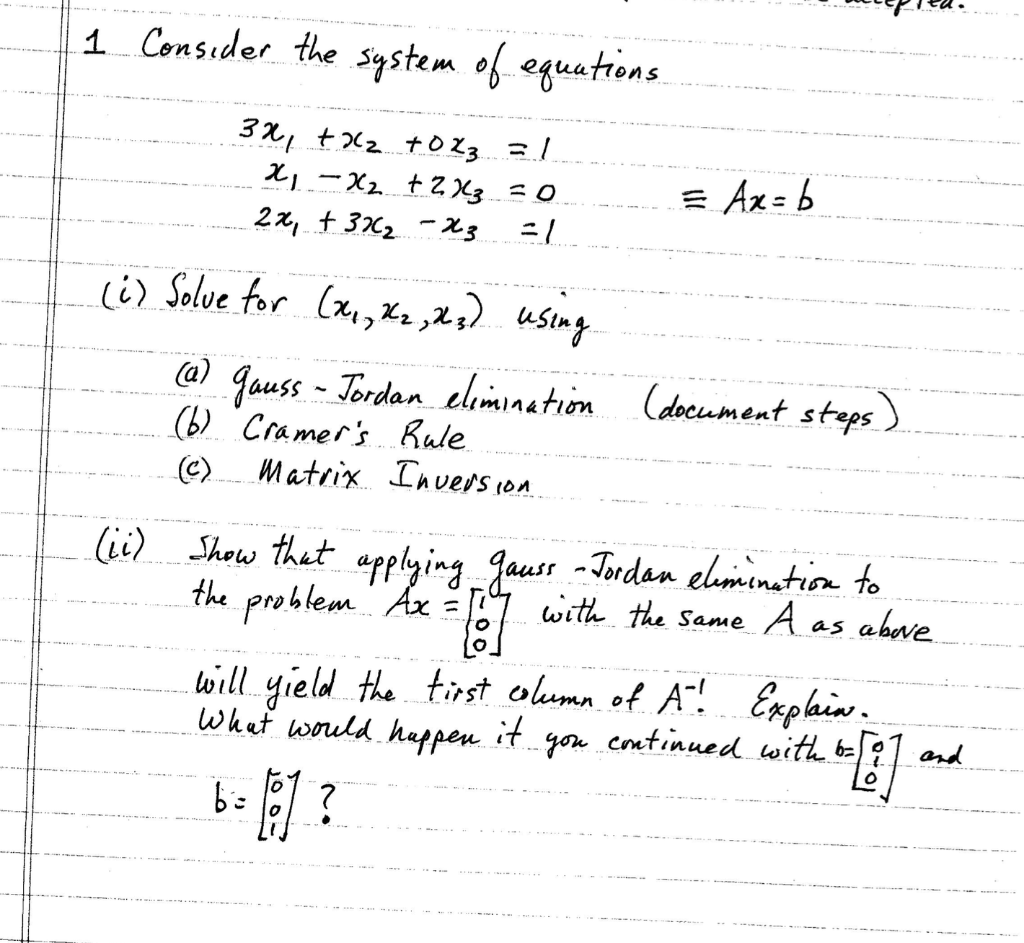 1 Consider the system of equations
3x₁ + x₂ + 0x₃ = 1
x₁ − x₂ + 2x₃ = 0 ≡ Ax = b
2x₁ + 3x₂ − x₃ = 1
(i) Solve for (x₁, x₂, x₃) using
(a) Gauss - Jordan elimination (document steps)
(b) Cramer's Rule
(c) Matrix Inversion
(ii) Show that applying Gauss - Jordan elimination to
the problem Ax = [1 0 0] with the same A as above
will yield the first column of A⁻¹. Explain.
What would happen if you continued with b = [0 1 0] and
b = [0 0 1] ?